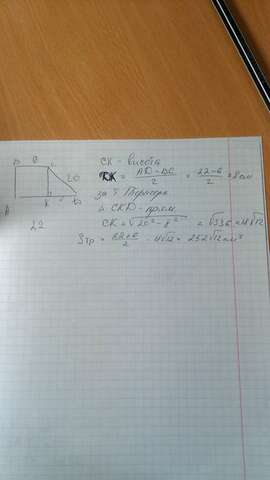 B 6 C
20
A K D
22
СК - висота
DK = AD - BC / 2 = 22-6 / 2 = 8 см
за т. Піфагора
Δ CKD - прям.
CK = √20² - 8² = √336 = 4√
Sтр = 22+6 / 2 · 4√ = 252√12 см²